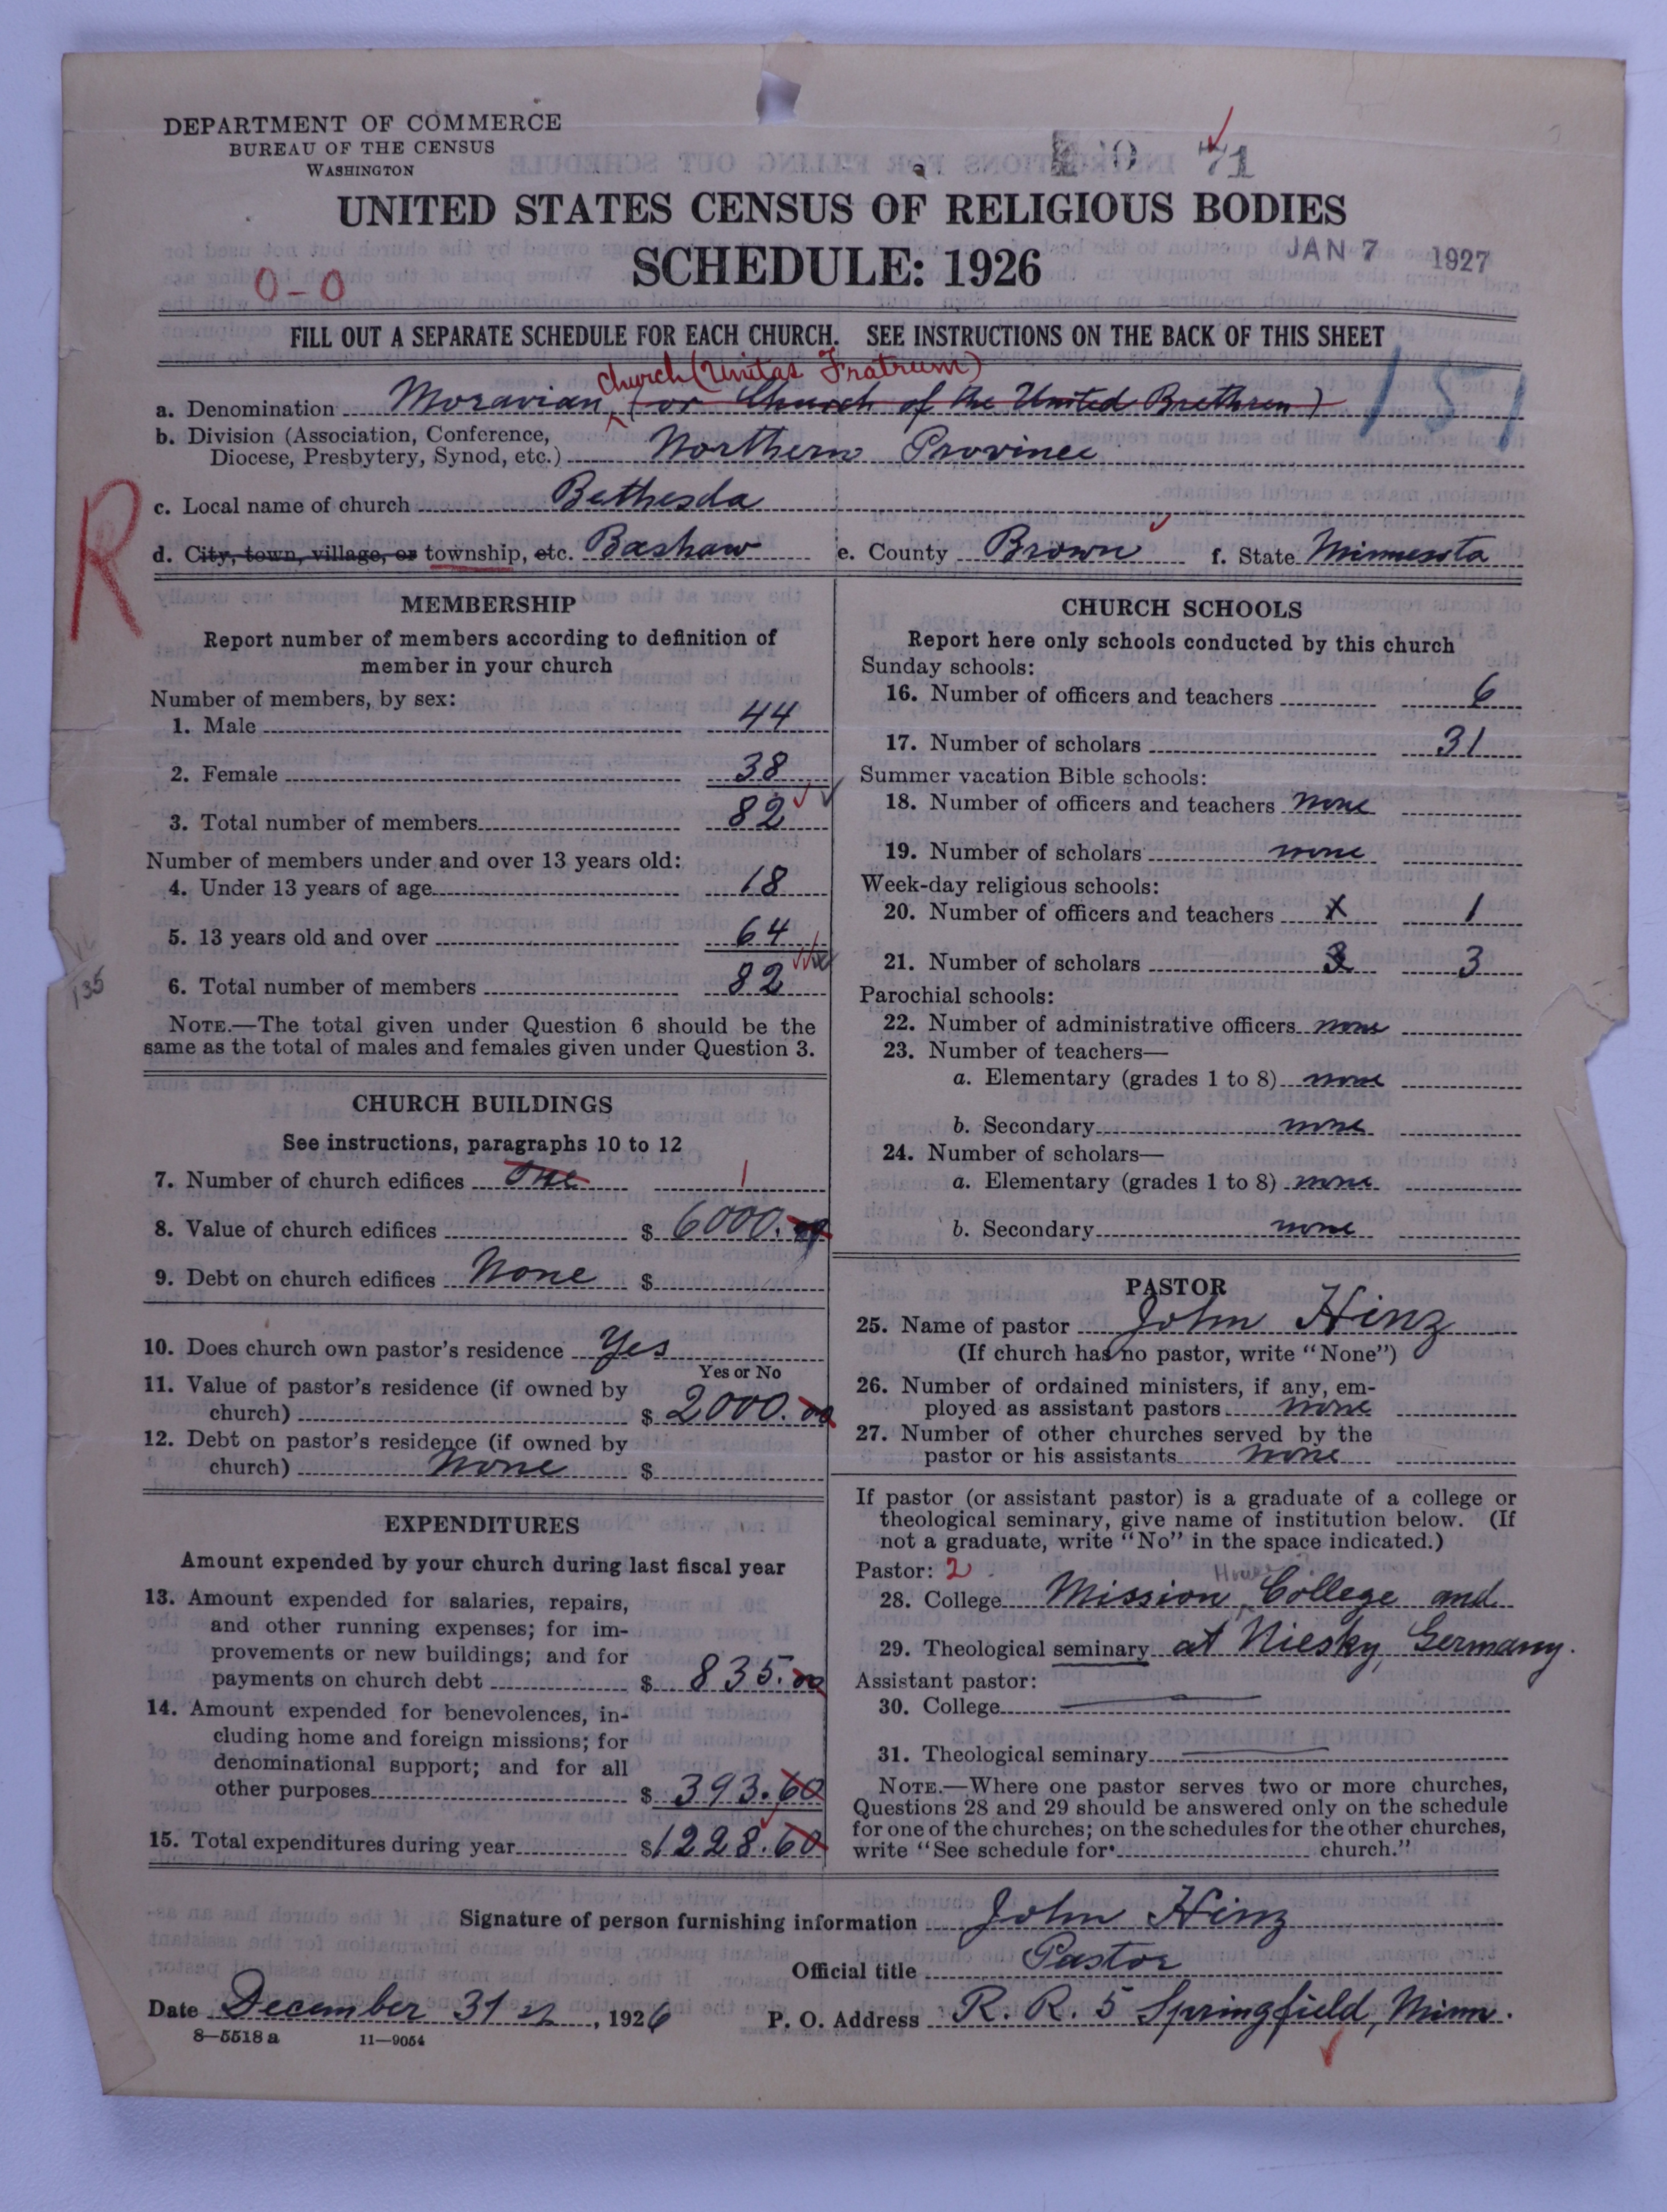 DEPARTMENT OF COMMERCE
BUREAU OF THE CENSUS
WASHINGTON
UNITED STATES CENSUS OF RELIGIOUS BODIES
SCHEDULE: 1926
JAN 7 1927
0-0
FILL OUT A SEPARATE SCHEDULE FOR EACH CHURCH. SEE INSTRUCTIONS ON THE BACK OF THIS SHEET
church (Unitas Fratrum)
a. Denomination Moravian (or Church of the United Brethren) 151
b. Division (Association, Conference,
Diocese, Presbytery, Synod, etc.) Northern Province
R
c. Local name of church Bethesda
d. City, town, village, or township, etc. Bashaw e. County Brown f. State Minnesota
MEMBERSHIP
Report number of members according to definition of
member in your church
Number of members, by sex:
1. Male 44
2. Female 38
3. Total number of members 82
Number of members under and over 13 years old:
4. Under 13 years of age 18
5. 13 years old and over 64
6. Total number of members 82
135
NOTE.—The total given under Question 6 should be the
same as the total of males and females given under Question 3.
CHURCH BUILDINGS
See instructions, paragraphs 10 to 12
7. Number of church edifices one 1
8. Value of church edifices $ 6000.00
9. Debt on church edifices None $
10. Does church own pastor's residence Yes
Yes or No
11. Value of pastor's residence (if owned by
church) $ 2000.00
12. Debt on pastor's residence (if owned by
church) None $
EXPENDITURES
Amount expended by your church during last fiscal year
13. Amount expended for salaries, repairs,
and other running expenses; for im-
provements or new buildings; and for
payments on church debt $ 835.00
14. Amount expended for benevolences, in-
cluding home and foreign missions; for
denominational support; and for all
other purposes $ 393.60
15. Total expenditures during year $1228.60
CHURCH SCHOOLS
Report here only schools conducted by this church
Sunday schools:
16. Number of officers and teachers 6
17. Number of scholars 31
Summer vacation Bible schools:
18. Number of officers and teachers none
19. Number of scholars none
Week-day religious schools:
20. Number of officers and teachers 1
21. Number of scholars 3 3
Parochial schools:
22. Number of administrative officers none
23. Number of teachers—
a. Elementary (grades 1 to 8) none
b. Secondary none
24. Number of scholars—
a. Elementary (grades 1 to 8) none
b. Secondary none
PASTOR
25. Name of pastor John Hinz
(If church has no pastor, write "None")
26. Number of ordained ministers, if any, em-
ployed as assistant pastors none
27. Number of other churches served by the
pastor or his assistants none
If pastor (or assistant pastor) is a graduate of a college or
theological seminary, give name of institution below. (If
not a graduate, write "No" in the space indicated.)
Pastor: 2
28. College Mission College and
29. Theological seminary at Niesky, Germany.
Assistant pastor:
30. College
31. Theological seminary
NOTE.—Where one pastor serves two or more churches,
Questions 28 and 29 should be answered only on the schedule
for one of the churches; on the schedules for the other churches,
write "See schedule for church."
Signature of person furnishing information John Hinz
Official title Pastor
Date December 31st, 1926 P. O. Address R. R. 5 Springfield, Minn.
8—5518 a 11—9054